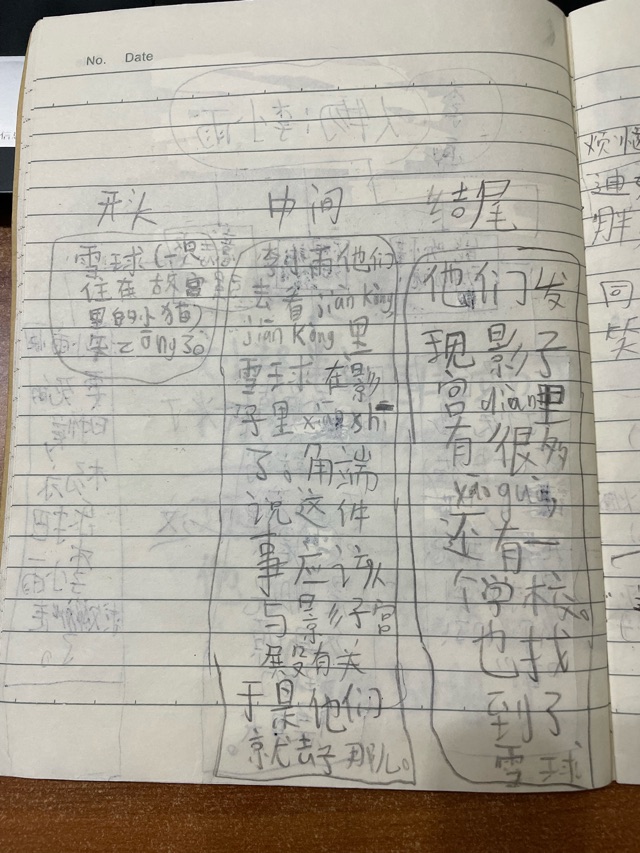 No. Date
开头
雪球(一只
住在故宫
里的小猫)
失zōng了。
中间
李小雨他们
去看jiān kòng
jiān kòng里
雪球在影
子里xiāo shī
了。角端
说这件
事应该
与影子宫
殿没有关
于是他们
就去了那儿。
结尾
他们发
现影子
宫diàn里
有很多
yāo guài,
还有一
个学校。
也找
到了
雪球
烦恼
胖
同
笑